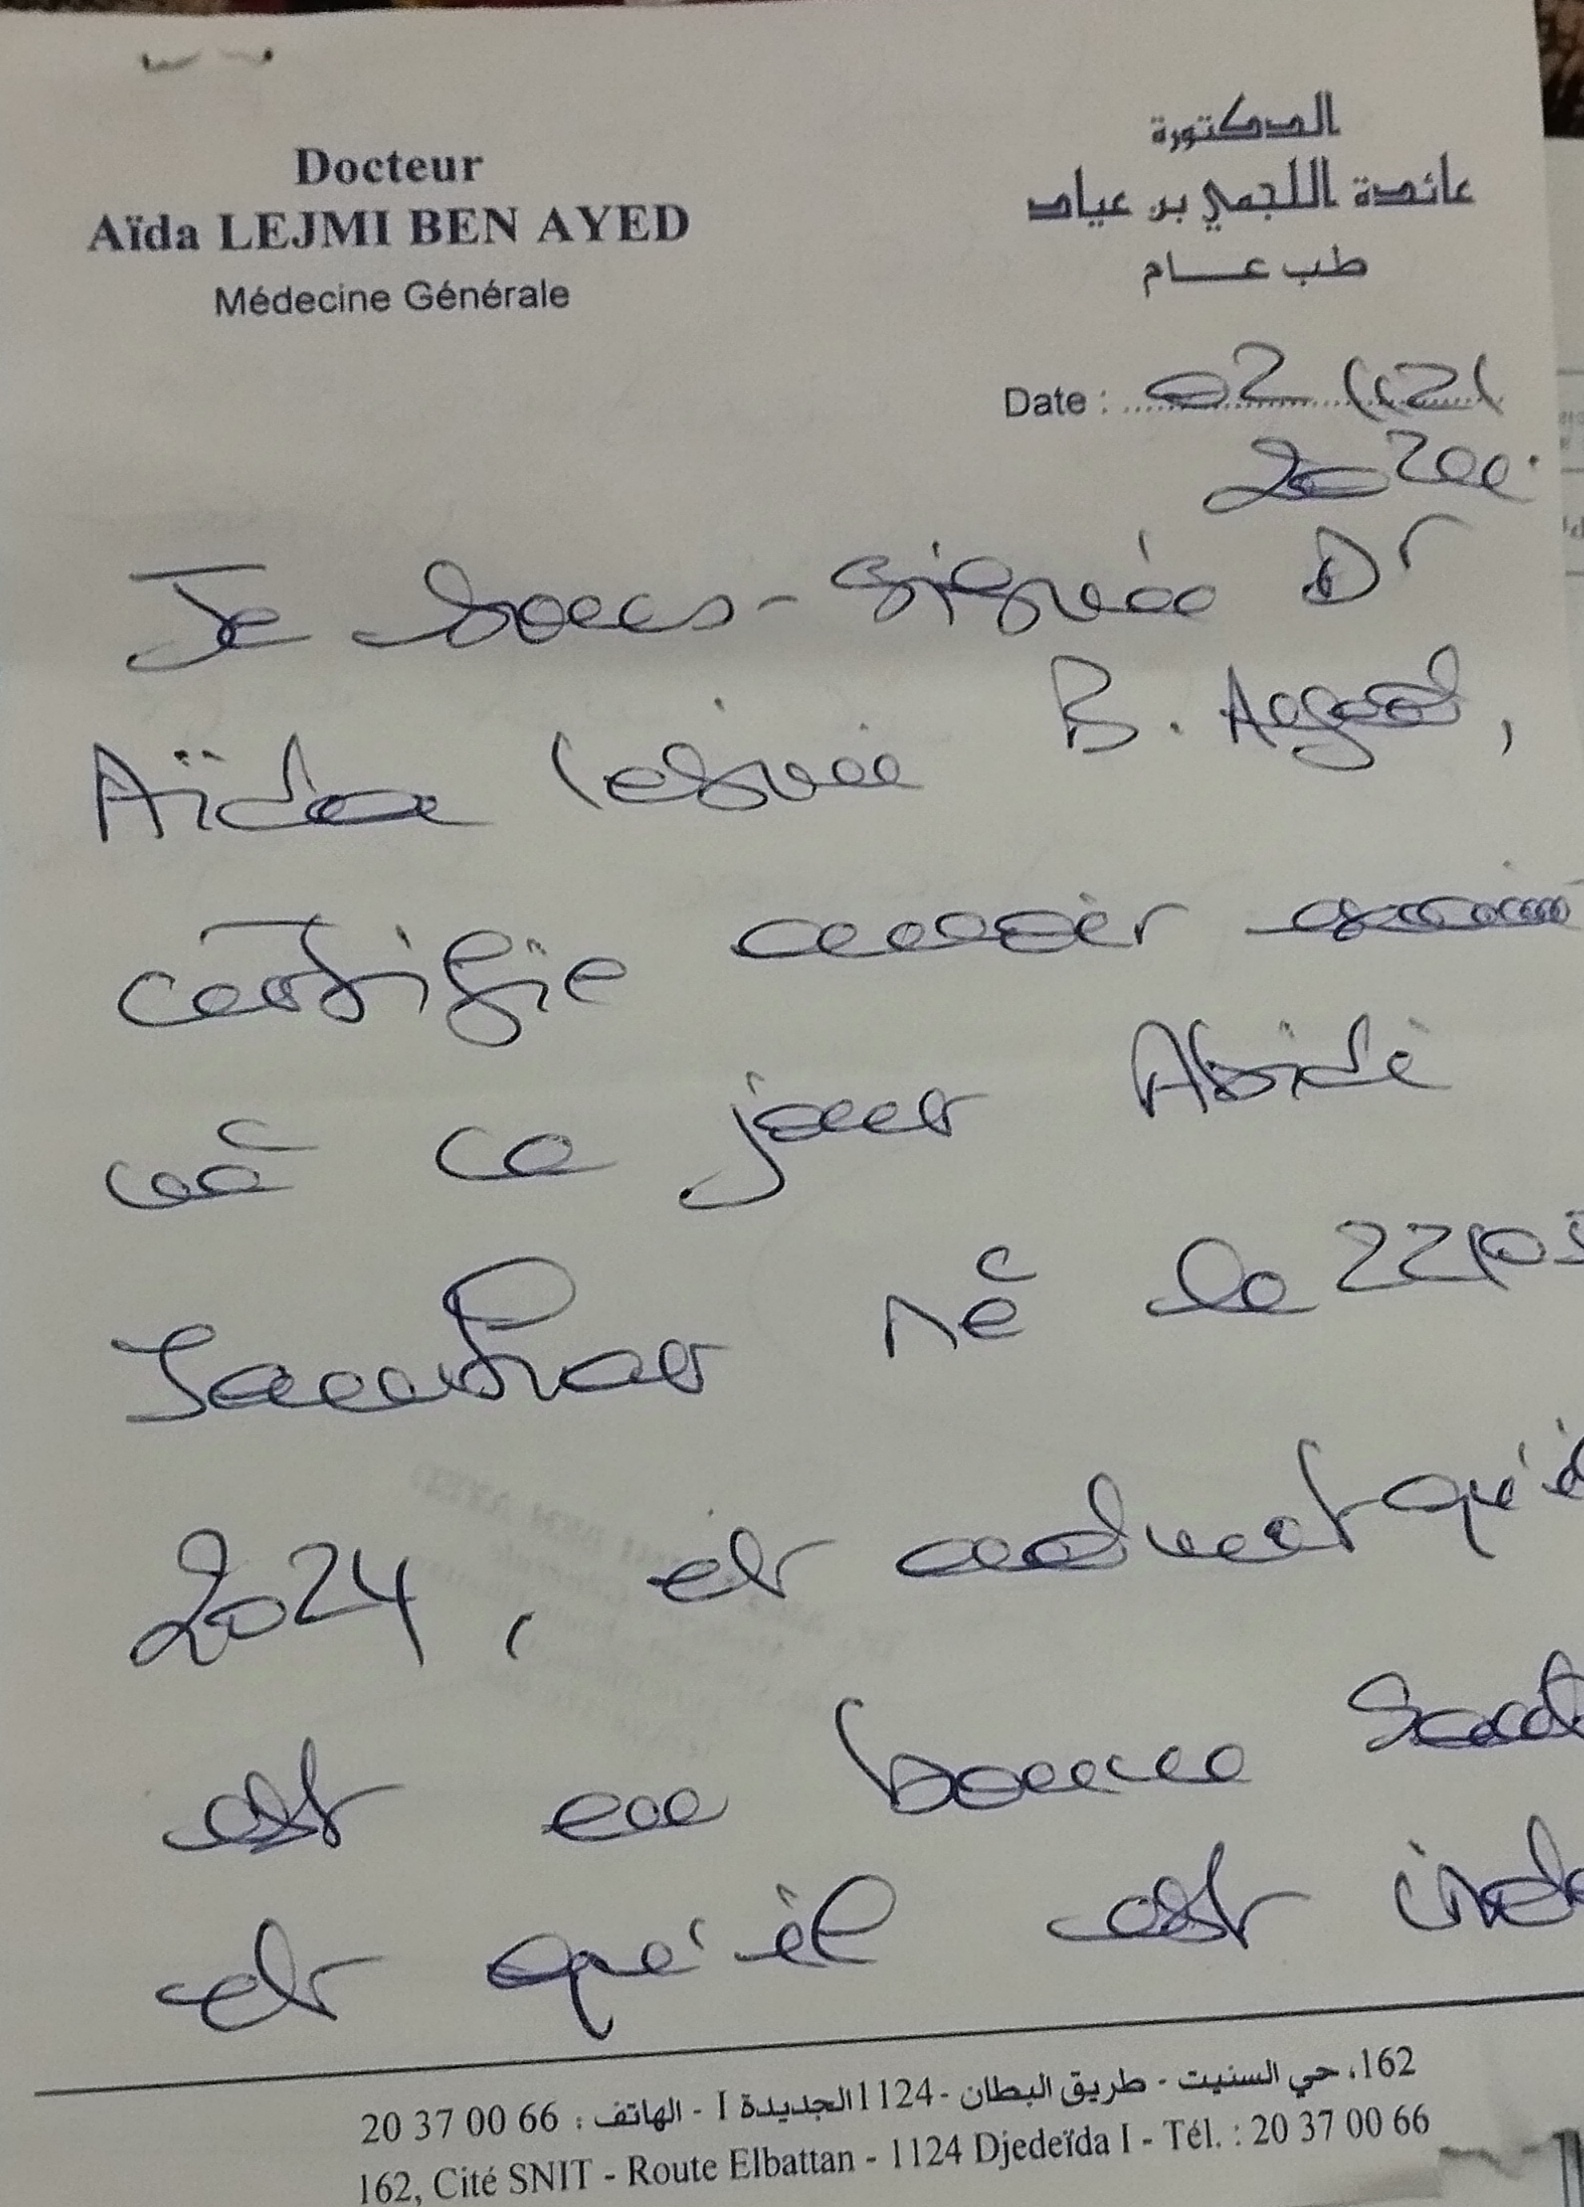 Docteur
Aïda LEJMI BEN AYED
Médecine Générale
الدكتورة
عائدة اللجمي بن عياد
طب عــــام
Date : 02/12/
Je sous-signée Dr
Aïda Lejmi B. Ayed,
certifie avoir
vu ce jour Abidi
né le 22/05
2024, et qu'il
est en bonne Sant
et qu'il est ind
162، حي السنيت - طريق البطان -1124الجديدة I - الهاتف : 66 00 37 20
162, Cité SNIT - Route Elbattan - 1124 Djedeïda I - Tél. : 20 37 00 66